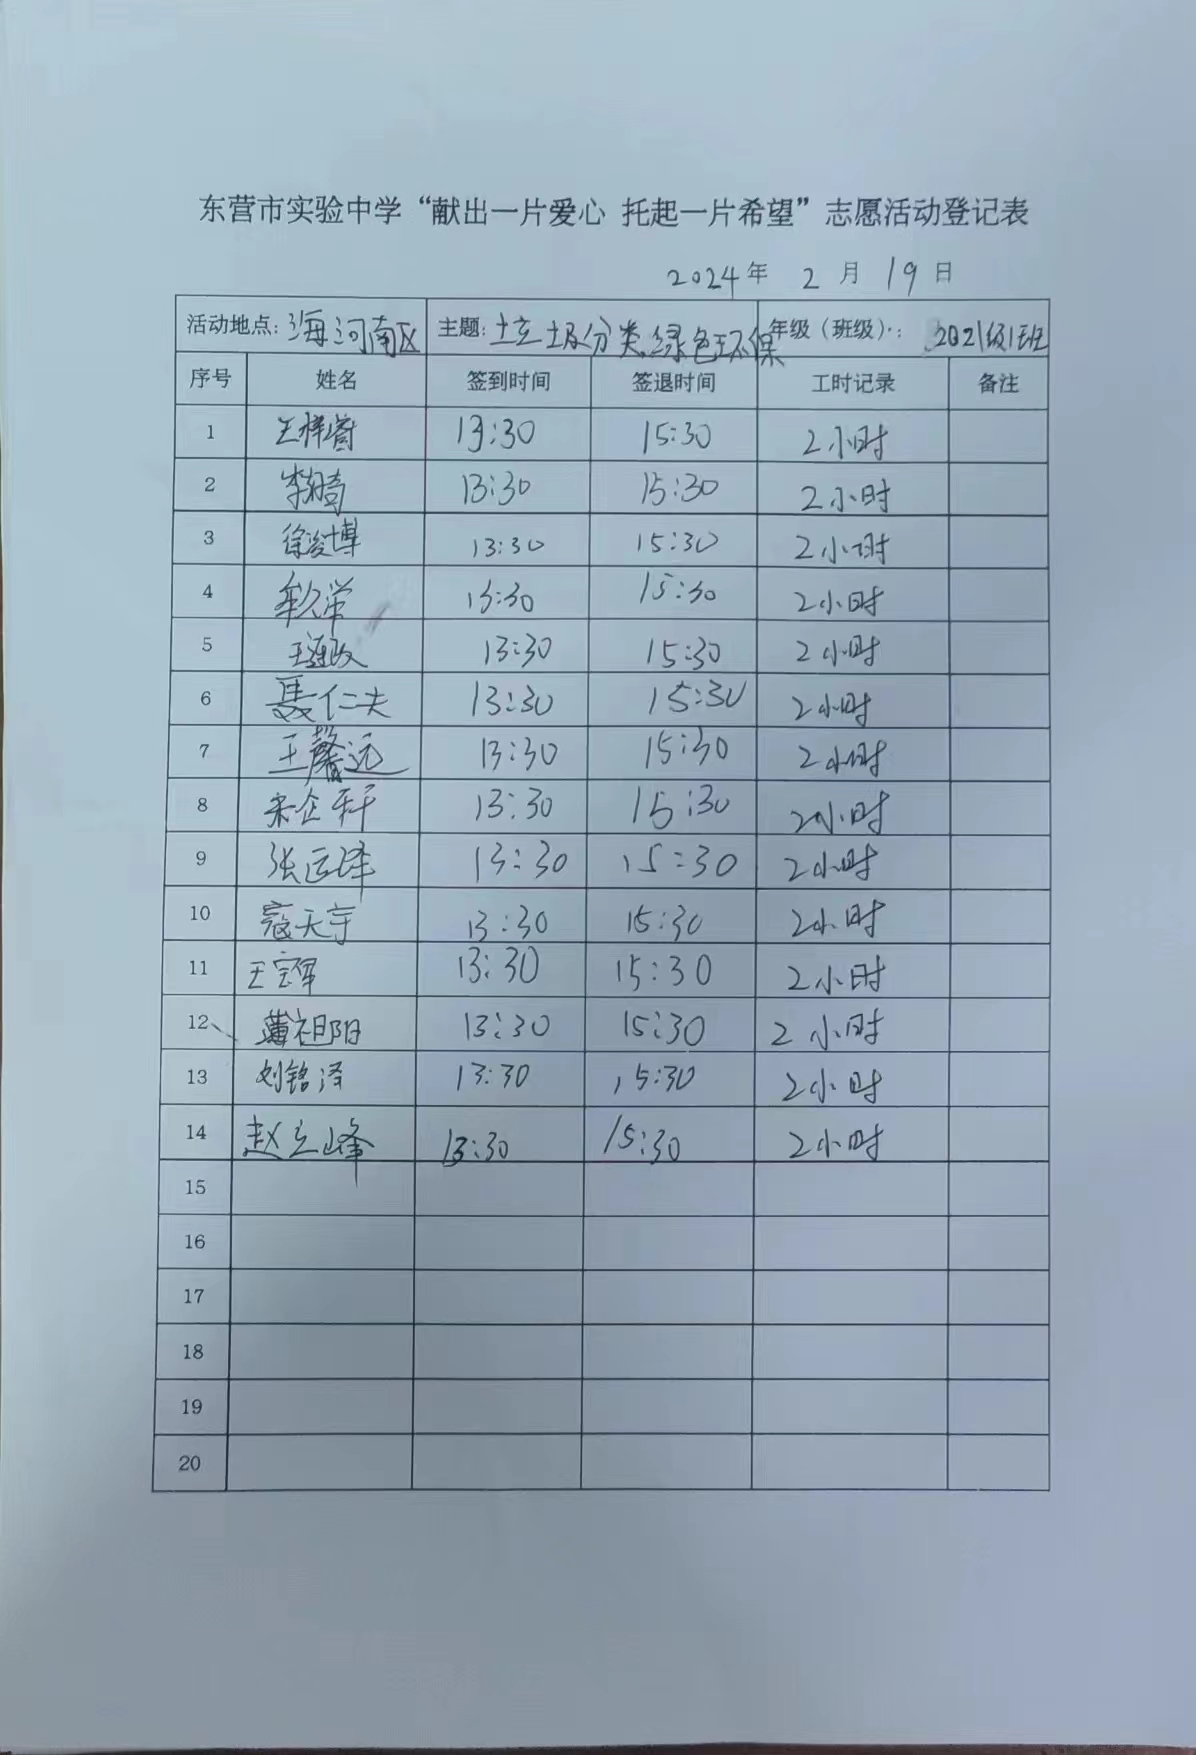 东营市实验中学“献出一片爱心 托起一片希望”志愿活动登记表
2024年 2 月 19 日
活动地点：海河南区 主题：垃圾分类,绿色环保 年级（班级）：2021级1班
序号 姓名 签到时间 签退时间 工时记录 备注
1 王梓 13:30 15:30 2小时
2 李 13:30 15:30 2小时
3 徐浚博 13:30 15:30 2小时
4 13:30 15:30 2小时
5 王 13:30 15:30 2小时
6 聂仁夫 13:30 15:30 2小时
7 王馨远 13:30 15:30 2小时
8 宋企轩 13:30 15:30 2小时
9 张运泽 13:30 15:30 2小时
10 寇天宇 13:30 15:30 2小时
11 王宝军 13:30 15:30 2小时
12 祖阳 13:30 15:30 2小时
13 刘铭泽 13:30 15:30 2小时
14 赵立峰 13:30 15:30 2小时
15
16
17
18
19
20